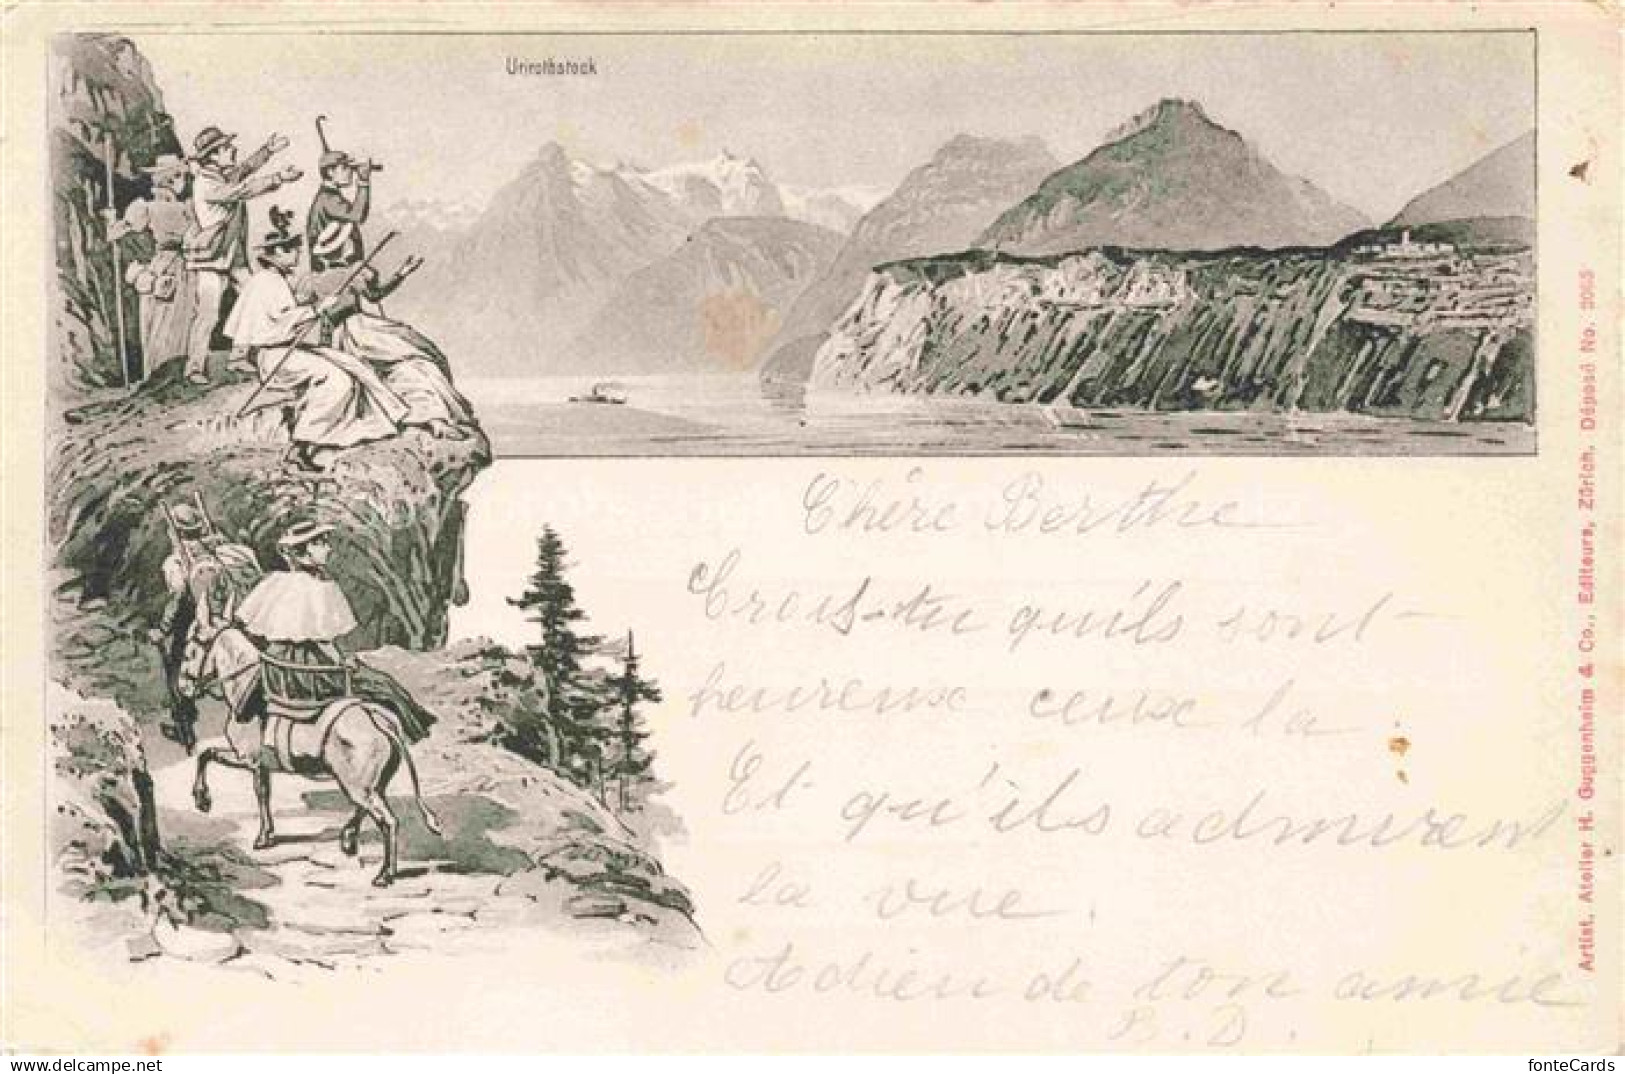 Urirothstock
Chère Berthe
Crois-tu qu'ils sont
heureux ceux la
Et qu'ils admirent
la vue.
Adieu de ton amie
B. D.
Artist. Atelier H. Guggenheim & Co., Editeurs, Zürich. Déposé No. 3065
fonteCards